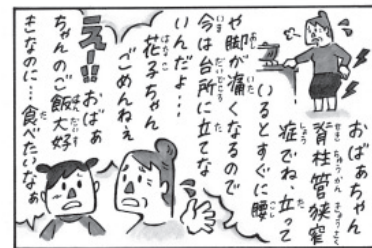 おばぁちゃん
脊柱管狭窄
症でね、立って
いるとすぐに腰
や脚が痛くなるので
今は台所に立てな
いんだよ…
花子ちゃん
ごめんねぇ
えー!!おばぁ
ちゃんのご飯大好
きなのに…食べたいなぁ